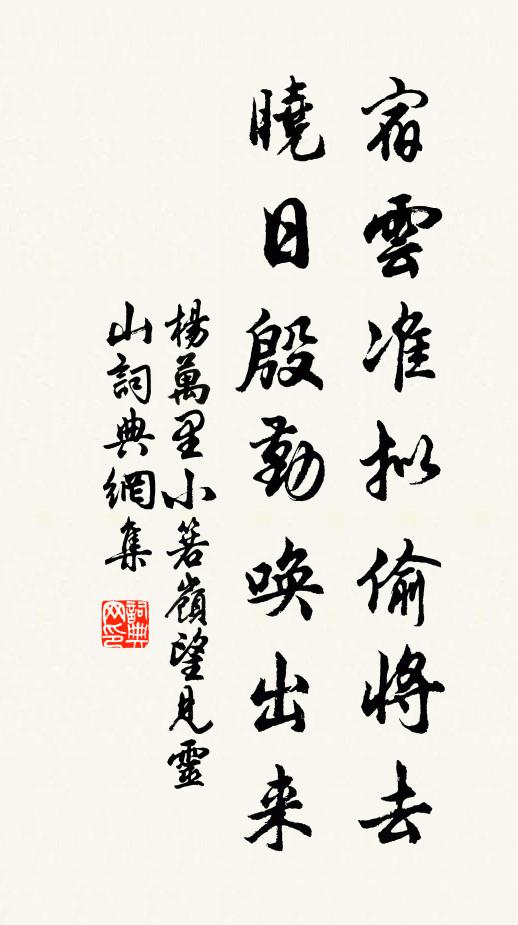 宿雲准拟偷將去
曉日殷勤喚出来
楊萬里小箬嶺望見靈
山詞典網集
詞典網印